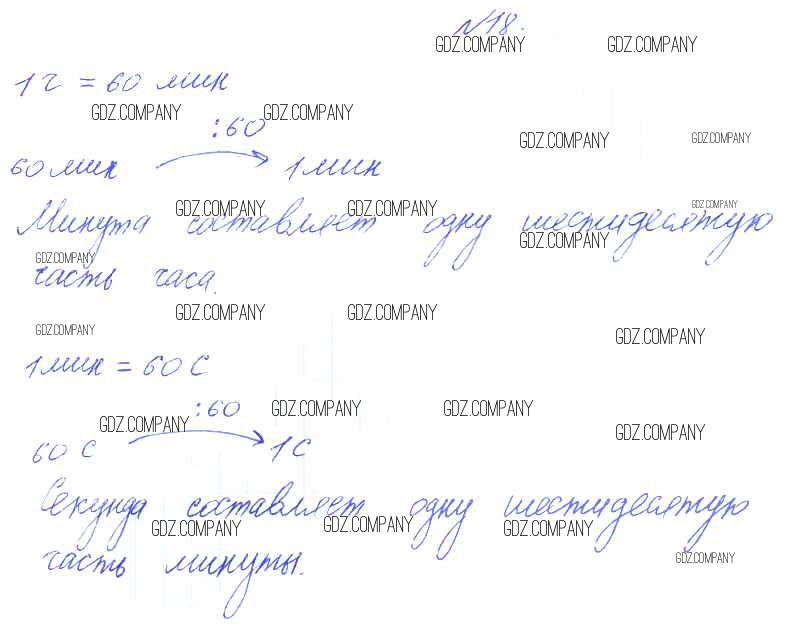 №18.
1 ч = 60 мин
:60
60 мин 1 мин
Минута составляет одну шестидесятую
часть часа.
1 мин = 60 С
:60
60 С 1 С
Секунда составляет одну шестидесятую
часть минуты.
GDZ.COMPANY GDZ.COMPANY
GDZ.COMPANY GDZ.COMPANY
GDZ.COMPANY GDZ.COMPANY
GDZ.COMPANY GDZ.COMPANY GDZ.COMPANY
GDZ.COMPANY
GDZ.COMPANY
GDZ.COMPANY GDZ.COMPANY
GDZ.COMPANY GDZ.COMPANY
GDZ.COMPANY GDZ.COMPANY
GDZ.COMPANY GDZ.COMPANY
GDZ.COMPANY GDZ.COMPANY GDZ.COMPANY
GDZ.COMPANY